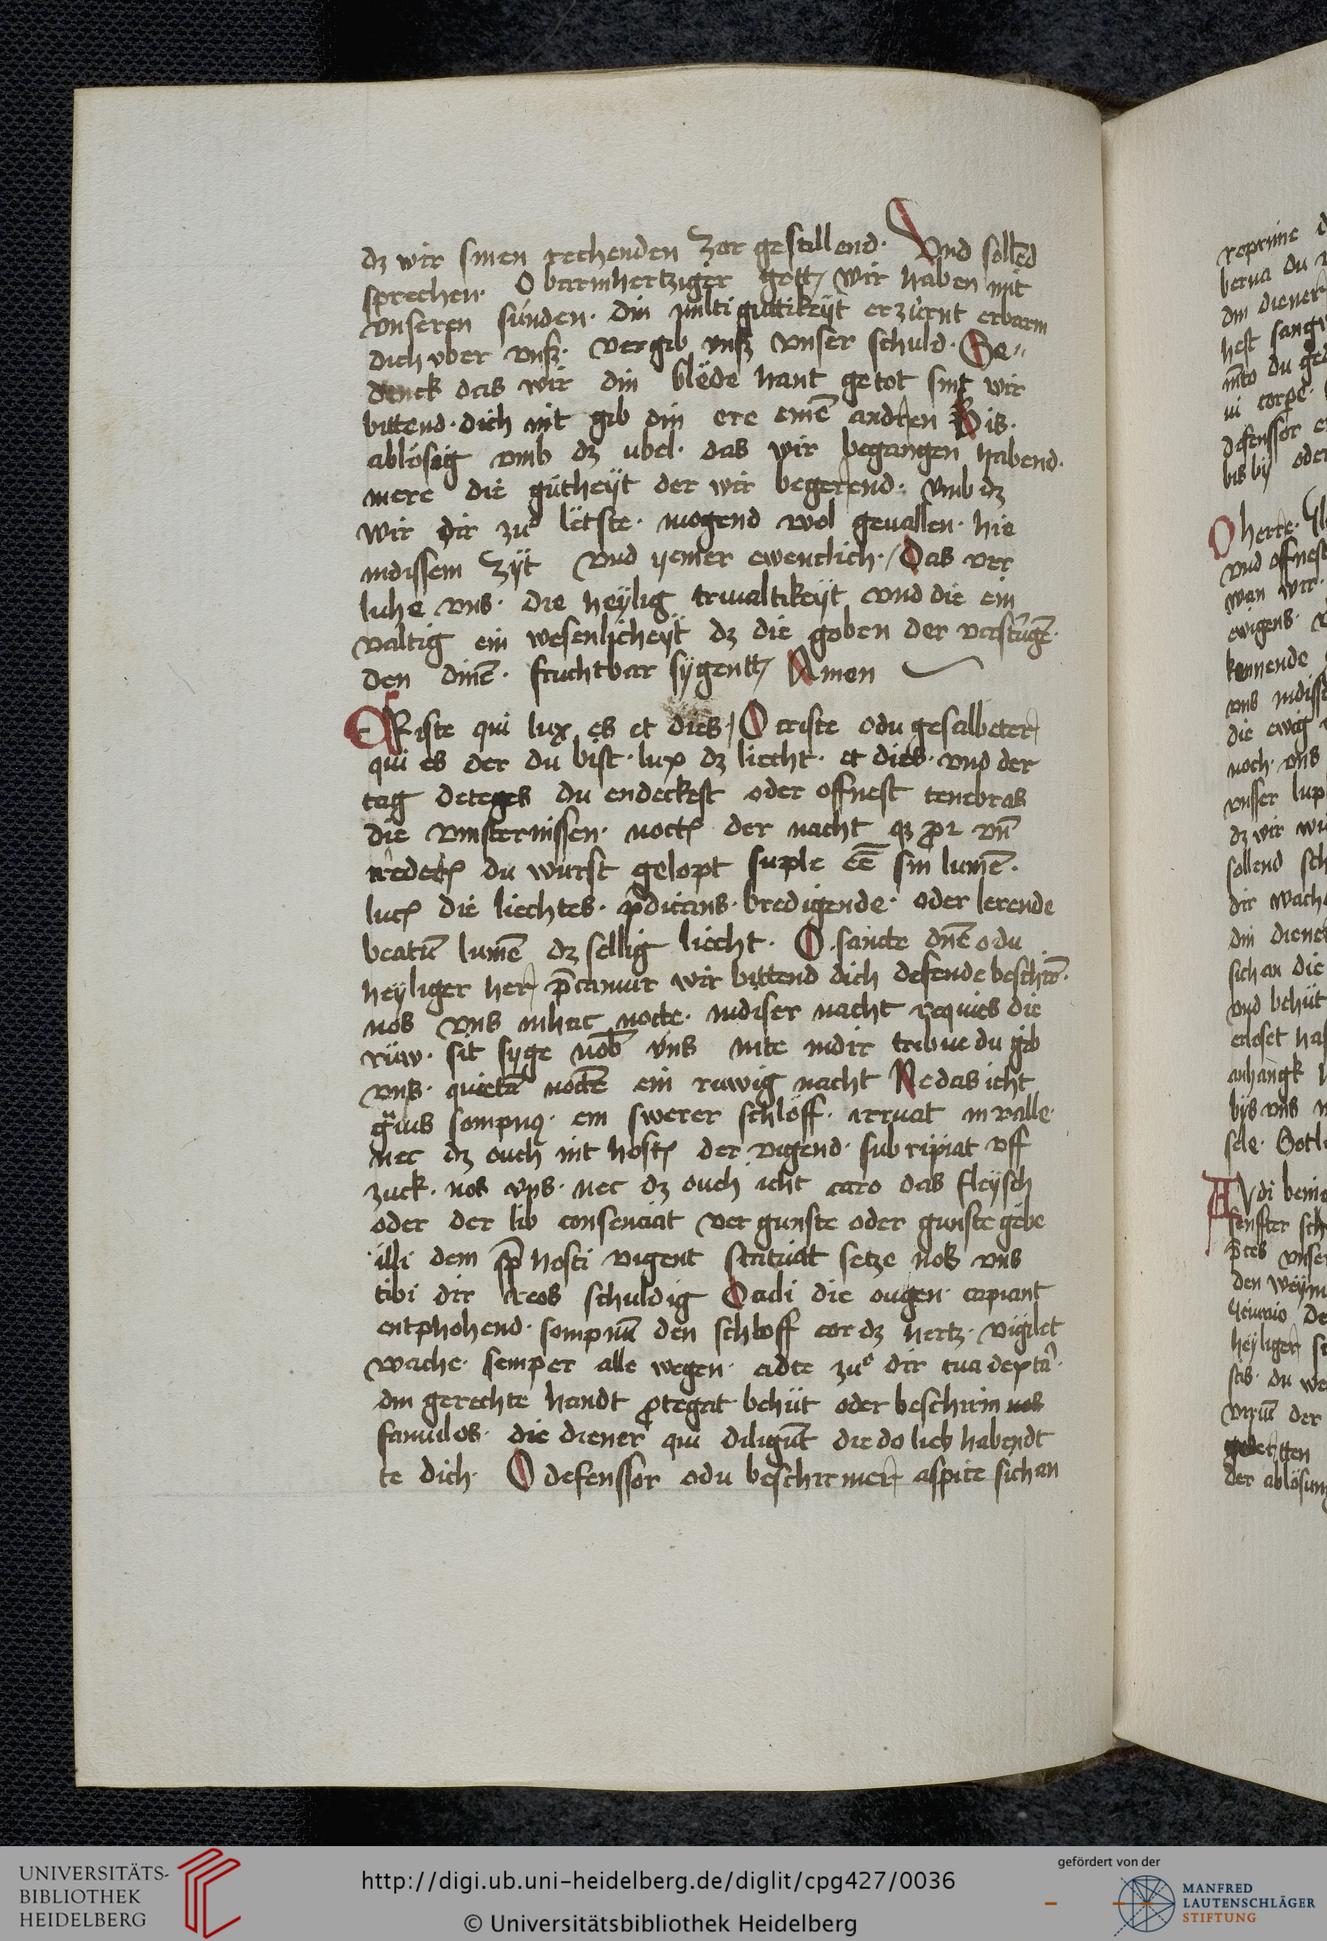 dz wir sinen rechenden zor gestillend. Vnd sollēd
sprechen. O barmhertziger gott, wir haben mit
vnseren sünden. din milti gůttikeÿt erzürnt erbarm
dich vber vnß. vergib vnß vnser schuld. Ge„
denck das wir din blëde hant getot sint wir
bittend. dich nit gib din ere einē andren Bis.
ablösig vmb dz ubel. das wir begangen habend.
mere die gütheÿt der wir begerend. vmb dz
wir dir zuͦ lëtste. mogend wol geuallen. hie
indissem zÿt vnd yemer ewenclich. / Das ver
luhe vns. die heÿlig triualtikeÿt vnd die ein
valtig ein wesenlicheÿt dz die goben der
den dinē. fruchtbar sÿgentt, Amen
CRiste qui lux es et dies / O criste odu gesalbeter
qui es der du bist. lux dz liecht. et dies. vnd der
tag deteges du endeckest oder offnest tenebras
die vinsternissen. noctꝭ der nacht qꝫ
du würst gelopt suple eē sin lumē.
lucꝭ die liechtes. p̄dicans. bredigende. oder lerende
beatū lumē dz sellig liecht. O. sancte dnē odu
heÿliger her p̄camur wir bittend dich defende beschir̄.
nos vns inhac nocte. indiser nacht requies die
rüw. sit sÿge nob̄ vns inte indir tribue du gib
vns. quietā noctē ein ruwig nacht Ne das icht
g̃uis sompnꝰ. ein swerer schlöff. irruat in valle.
nec dz ouch nit hostꝭ der vigend. subripiat vff
zuck. nos vns. nec dz ouch icht caro das fleÿsch
oder der lib consenciat vergunste oder gunste gebe
illi dem hosti vigent statuat setze nos vns
tibi dir reos schuldig Oculi die ougen. capiant
entphohend. sompnū den schloff cor dz hertz. vigilet
wache. semper alle wegen. adte zuͦ dir tua dextͣ.
din gerechte handt ꝓtegat behüt oder beschirm nos
famulos. die diener qui diligūt die do lieb habendt
te dich. O defenssor odu beschirmer aspice sich an
UNIVERSITÄTS-
BIBLIOTHEK
HEIDELBERG
http://digi.ub.uni-heidelberg.de/diglit/cpg427/0036
© Universitätsbibliothek Heidelberg
gefördert von der
MANFRED
LAUTENSCHLÄGER
STIFTUNG